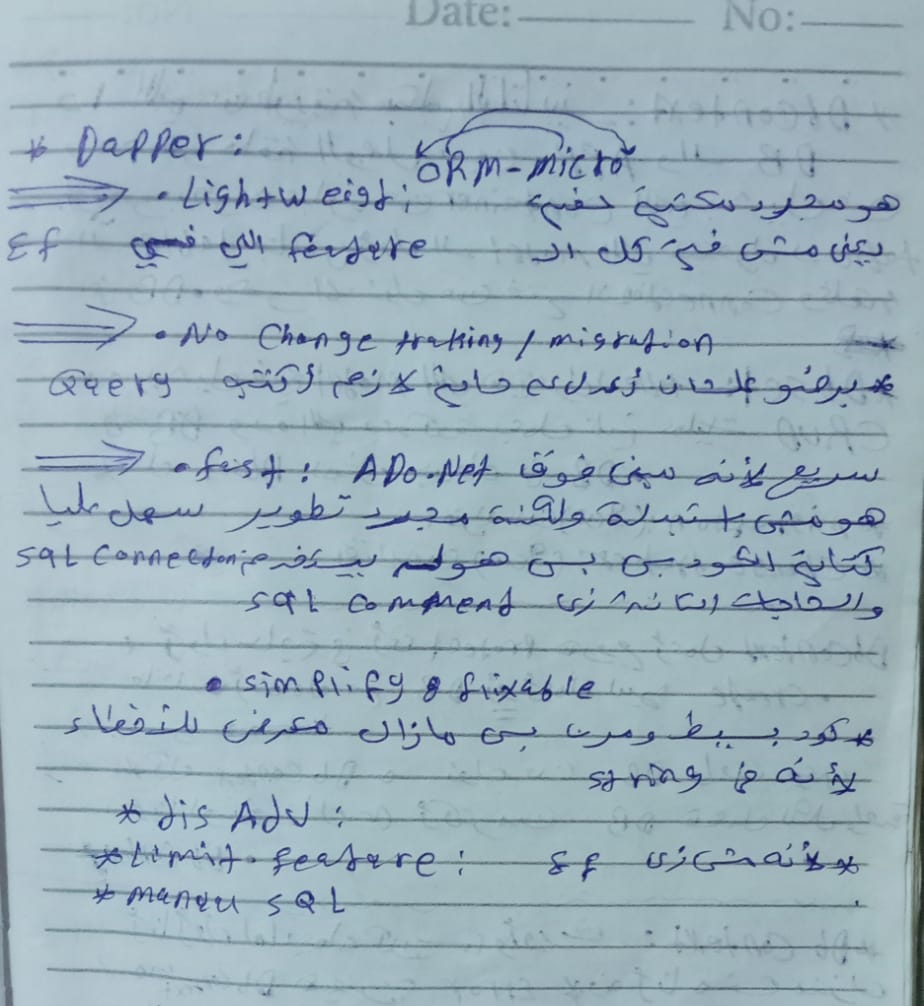 Date: No:
* Dapper:
ORM-micro
• Lightweigt: هو مجرد مكتبة خفيفة
يعني مش فيه كل ال feature اللي في Ef
• No Change traking / migration
* برضو علشان أعدل حاجة لازم أكتب Query
• fast: سريع لأنه مبني فوق ADo.Net
هو مجرد تطوير سهل عليا
كتابة الكود بس بيستخدم sql connection
والحاجات زي sql comment
• simplify & flixable
* كود بسيط ومرن بس مازال معرض للأخطاء
لأنه string
* dis Adv:
* Limit.feature: * لأنه مش زي Ef
* manau sQL